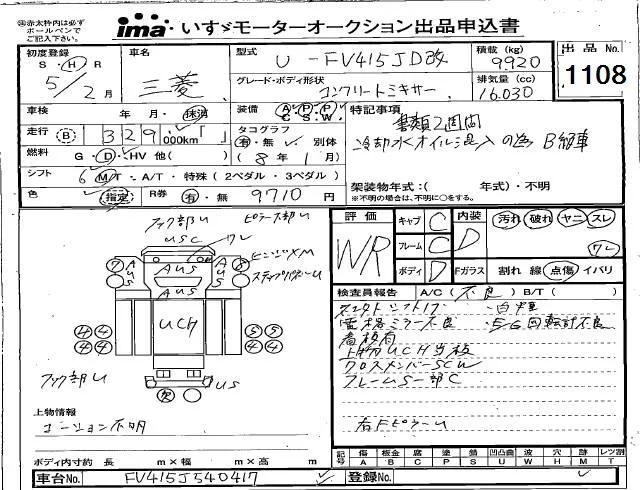 ㊟赤太枠内は必ず
ボールペンで
ご記入下さい。
ima いすゞモーターオークション出品申込書
初度登録
S・H・R
5/2月
車名
三菱
型式
U-FV415JD改
積載(kg)
9920
グレード・ボディ形状
コンクリートミキサー
排気量(cc)
16.030
出品No.
1108
車検 年・月・抹消
装備 A/C P/S P/W
走行 B 329,000km「 」
タコグラフ
有・無 別体
(8年1月)
燃料 G・D・HV 他( )
シフト 6 MT・A/T・特殊(2ペダル・3ペダル)
色 指定 R券 有・無 9710円
特記事項
書類2週間
冷却水オイル混入の為 B級車
架装物年式:( 年式)・不明
※不明の場合は、不明に○をする。
フック部U ピラー部U
USC ワレ
ヒンジXM
ステップパネルU
7 AUS AUS AUS AUS 6
UCH
4 4 5 5
4 4 5 5
フック部U
US
欠
上物情報
コーション不明
ボディ内寸約 長 m×幅 m×高 m
評価
WR
キャブ C
フレーム C
ボディ D
内装 D
汚れ 破れ ヤニ スレ
ワレ
Fガラス 割れ 線 点傷 イバリ
検査員報告 A/C(不良)B/T( )
電格ミラー不良
・EG回転計不良
看板有
上物UCH当板
クロスメンバーSCW
フレームS一部C
右FピラーU
記号
傷 A
板金 B
腐 C
塗 P
錆 S
凹凸曲 U
波 W
穴 H
跡 M
レンズ割 T
車台No. FV415J540417
登録No.